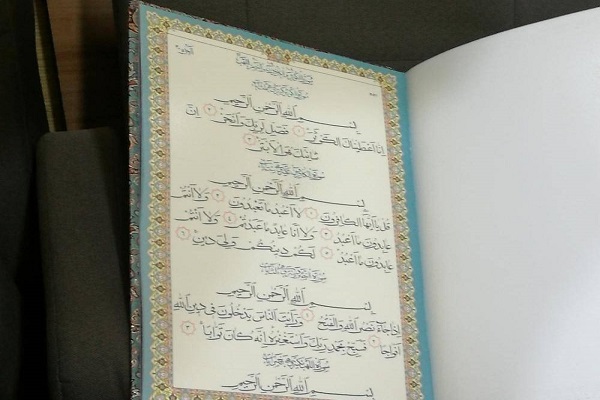 بِسْمِ اللهِ الرَّحْمٰنِ الرَّحِيمِ
اِنَّا اَعْطَيْنَاكَ الْكَوْثَرَ ١ فَصَلِّ لِرَبِّكَ وَانْحَرْ ٢ اِنَّ
شَانِئَكَ هُوَ الْاَبْتَرُ ٣
بِسْمِ اللهِ الرَّحْمٰنِ الرَّحِيمِ
قُلْ يَا اَيُّهَا الْكَافِرُونَ ١ لَا اَعْبُدُ مَا تَعْبُدُونَ ٢ وَلَا اَنْتُمْ
عَابِدُونَ مَا اَعْبُدُ ٣ وَلَا اَنَا عَابِدٌ مَا عَبَدْتُمْ ٤ وَلَا اَنْتُمْ
عَابِدُونَ مَا اَعْبُدُ ٥ لَكُمْ دِينُكُمْ وَلِيَ دِينِ ٦
بِسْمِ اللهِ الرَّحْمٰنِ الرَّحِيمِ
اِذَا جَاءَ نَصْرُ اللهِ وَالْفَتْحُ ١ وَرَاَيْتَ النَّاسَ يَدْخُلُونَ فِي دِينِ اللهِ
اَفْوَاجًا ٢ فَسَبِّحْ بِحَمْدِ رَبِّكَ وَاسْتَغْفِرْهُ اِنَّهُ كَانَ تَوَّابًا ٣
بِسْمِ اللهِ الرَّحْمٰنِ الرَّحِيمِ